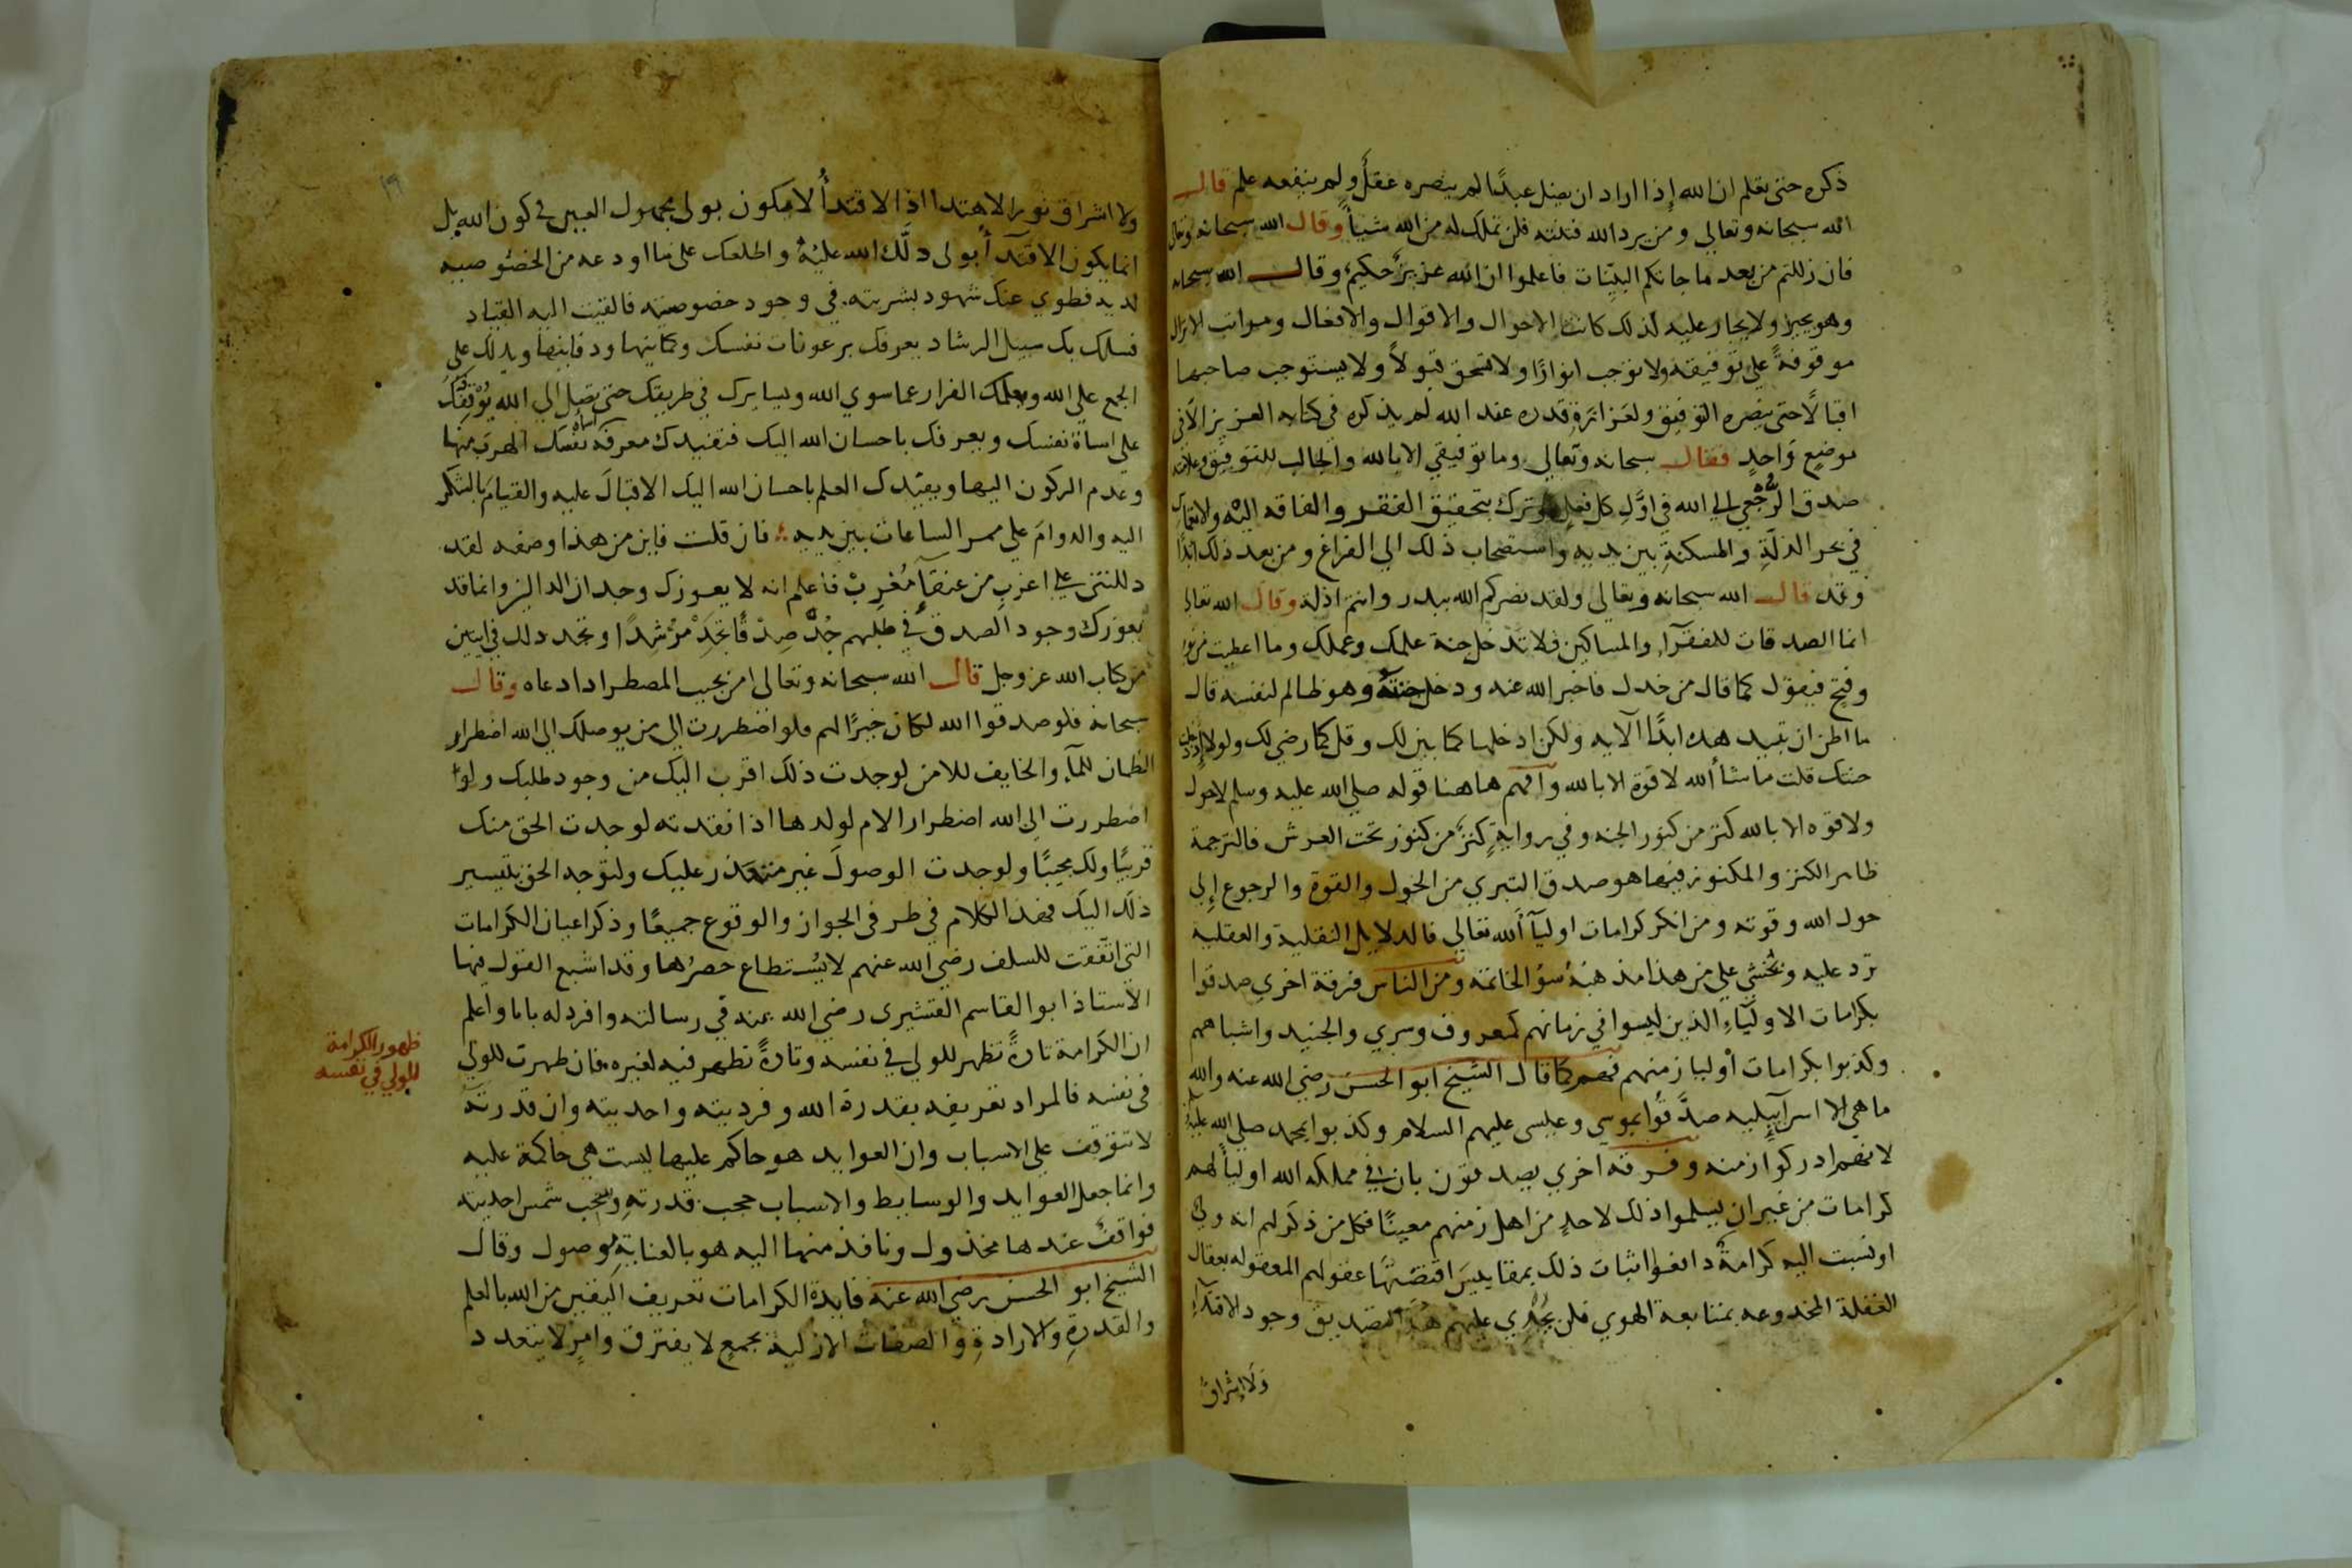 ذكره حتى تعلم ان الله إذا اراد ان يضل عبدًا لم ينصره عقلٌ ولم ينفعه علم قال
الله سبحانه وتعالي ومن يرد الله فتنته فلن تملك له من الله شيئاً وقال الله سبحانه وتعالى
فان زللتم من بعد ما جاتكم البيّنات فاعلموا ان الله عزيزٌ حكيم وقال الله سبحانه
وهو يجير ولا يجار عليه لذلك كانت الاحوال والاقوال والافعال ومراتب الانزال
موقوفةً علي توفيقه ولا توجب انوارًا ولا تستحق قبولاً ولا يستوجب صاحبها
اقبالًا حتي ينصره التوفيق ولعزازة قدره عند الله لم يذكره في كتابه العزيز الا في
موضع واحدٍ فقال سبحانه وتعالي وما توفيقي الا بالله والجالب للتوفيق وعلامته
صدق الرُّجعي الي الله في اوّل كل فعلٍ وترك بتحقيق الفقر والفاقه اليه والانغماس
في بحر الذلّةِ والمسكنةِ بين يديه واستصحاب ذلك الي الفراغ ومن بعد ذلك ابدًا
وقد قال الله سبحانه وتعالي ولقد نصركم الله ببدر وانتم اذلة وقال الله تعالي
انما الصدقات للفقرآء والمساكين فلا تدخل جنة علمك وعملك وما اعطيت من نور
وفتح فيقول كما قال من خذل فاخبر الله عنه ودخل جنته وهو ظالم لنفسه قال
ما اظن ان تبيد هذه ابدًا الآيه ولكن ادخلها كما بين لك وقل كما رضي لك ولولا إذ دخلت
جنتك قلت ماشأ الله لا قوة الا بالله وافهم هاهنا قوله صلي الله عليه وسلم لا حول
ولا قوه الا بالله كنز من كنوز الجنه وفي روايةٍ كنزٌ من كنوز تحت العرش فالترجمة
ظاهر الكنز والمكنوز فيها هو صدق التبري من الحول والقوة والرجوع إلي
حول الله وقوته ومن انكر كرامات اوليآ الله تعالي فالدلايل النقلية والعقلية
تردّ عليه ويُخشي علي من هذا مذهبه سؤ الخاتمة ومن الناس فرقة اخري صدقوا
بكرامات الاوليآء الذين ليسوا في زمانهم كمعروف وسري والجنيد واشباههم
وكذبوا بكرامات أوليا زمنهم فهم كما قال الشيخ ابو الحسن رضي الله عنه والله
ما هي الا اسرآييليه صدَّقوا بموسى وعيسى عليهم السلام وكذبوا بمحمد صلي الله عليه
لانهم ادركوا زمنه وفرقه اخري يصدقون بان في مملكه الله اولياً لهم
كرامات من غير ان يسلموا ذلك لاحدٍ من اهل زمنهم معينًا فكل من ذكر لهم انه ولي
او نسبت اليه كرامةٌ دافعوا اثبات ذلك بمقاييس اقتضتها عقولهم المعقوله بعقال
الغفلة المخدوعه بمتابعة الهوي فلن يُجْدِي عليهم هذا التصديق وجود الاقتدآء
ولا إشراق
ولا اشراق نور الاهتدا اذ الاقتدأ لا يكون بولي مجهول العين في كون الله بل
انما يكون الاقتدآ بولي دلَّك الله عليه واطلعك على ما اودعه من الخصوصيه
لديه فطوي عنك شهود بشريته في وجود خصوصيته فالقيت اليه القياد
فسلك بك سبيل الرشاد يعرفك برعونات نفسك وكماينها ودفاينها ويدلك على
الجمع علي الله ويعلمك الفرار عما سوي الله ويسايرك في طريقك حتى تصل الي الله يُوْقِفُكَ
علي اساة نفسك ويعرفك باحسان الله اليك فتفيدك معرفة اساة نفسك الهرب منها
وعدم الركون اليها ويفيدك العلم باحسان الله اليك الاقبالَ عليه والقيامَ بالشكر
اليه والدوامَ علي ممر الساعات بين يديه فان قلت فاين من هذا وصفه لقد
دللتني علي اعزب من عنقآ مُغرِبْ فاعلم انه لا يعوزك وجدان الدالين وانما قد
يعوزك وجود الصدق في طلبهم جُدَّ صِدْقًا تَجِدْ مُرْشِدًا وتجد ذلك في ايتين
من كتاب الله عز وجل قال الله سبحانه وتعالى امن يجيب المضطر اذا دعاه وقال
سبحانه فلو صدقوا الله لكان خيرًا لهم فلو اضطررت الي من يوصلك الي الله اضطرار
الظمان للمآء والخايف للامن لوجدت ذلك اقرب اليك من وجود طلبك ولو
اضطررت الي الله اضطرار الام لولدها اذا فقدته لوجدت الحق منك
قريبًا ولك مجيبًا ولوجدت الوصولَ غير متعذر عليك ولتوجه الحق بتيسير
ذلك اليك فهذا الكلام في طرفي الجواز والوقوع جميعًا وذكر اعيان الكرامات
التي اتّفقت للسلف رضي الله عنهم لا يُستطاع حصرُها وقد اشبع القول فيها
الاستاذ ابو القاسم القشيرى رضي الله عنه في رسالته وافرد له بابا واعلم
ان الكرامة تارةً تظهر للولي في نفسه وتارةً تظهر فيه لغيره فان ظهرت للولي
في نفسه فالمراد تعريفه بقدرة الله وفرديته واحديته وان قدرته
لا تتوقف علي الاسباب وان العوايد هو حاكم عليها ليست هي حاكمة عليه
وانما جعل العوايد والوسايط والاسباب حجب قدرتهِ وسحب شمس احديته
فواقفٌ عندها مخذول ونافذ منها اليه هو بالعنايةِ موصول وقال
الشيخ ابو الحسن رضي الله عنه فايدة الكرامات تعريف اليقين من الله بالعلم
والقدرةِ والارادةِ والصفات الازلية بجمعٍ لا يفترق وامرٍ لا يتعدد
ظهور الكرامة
للولي في نفسه
١٩